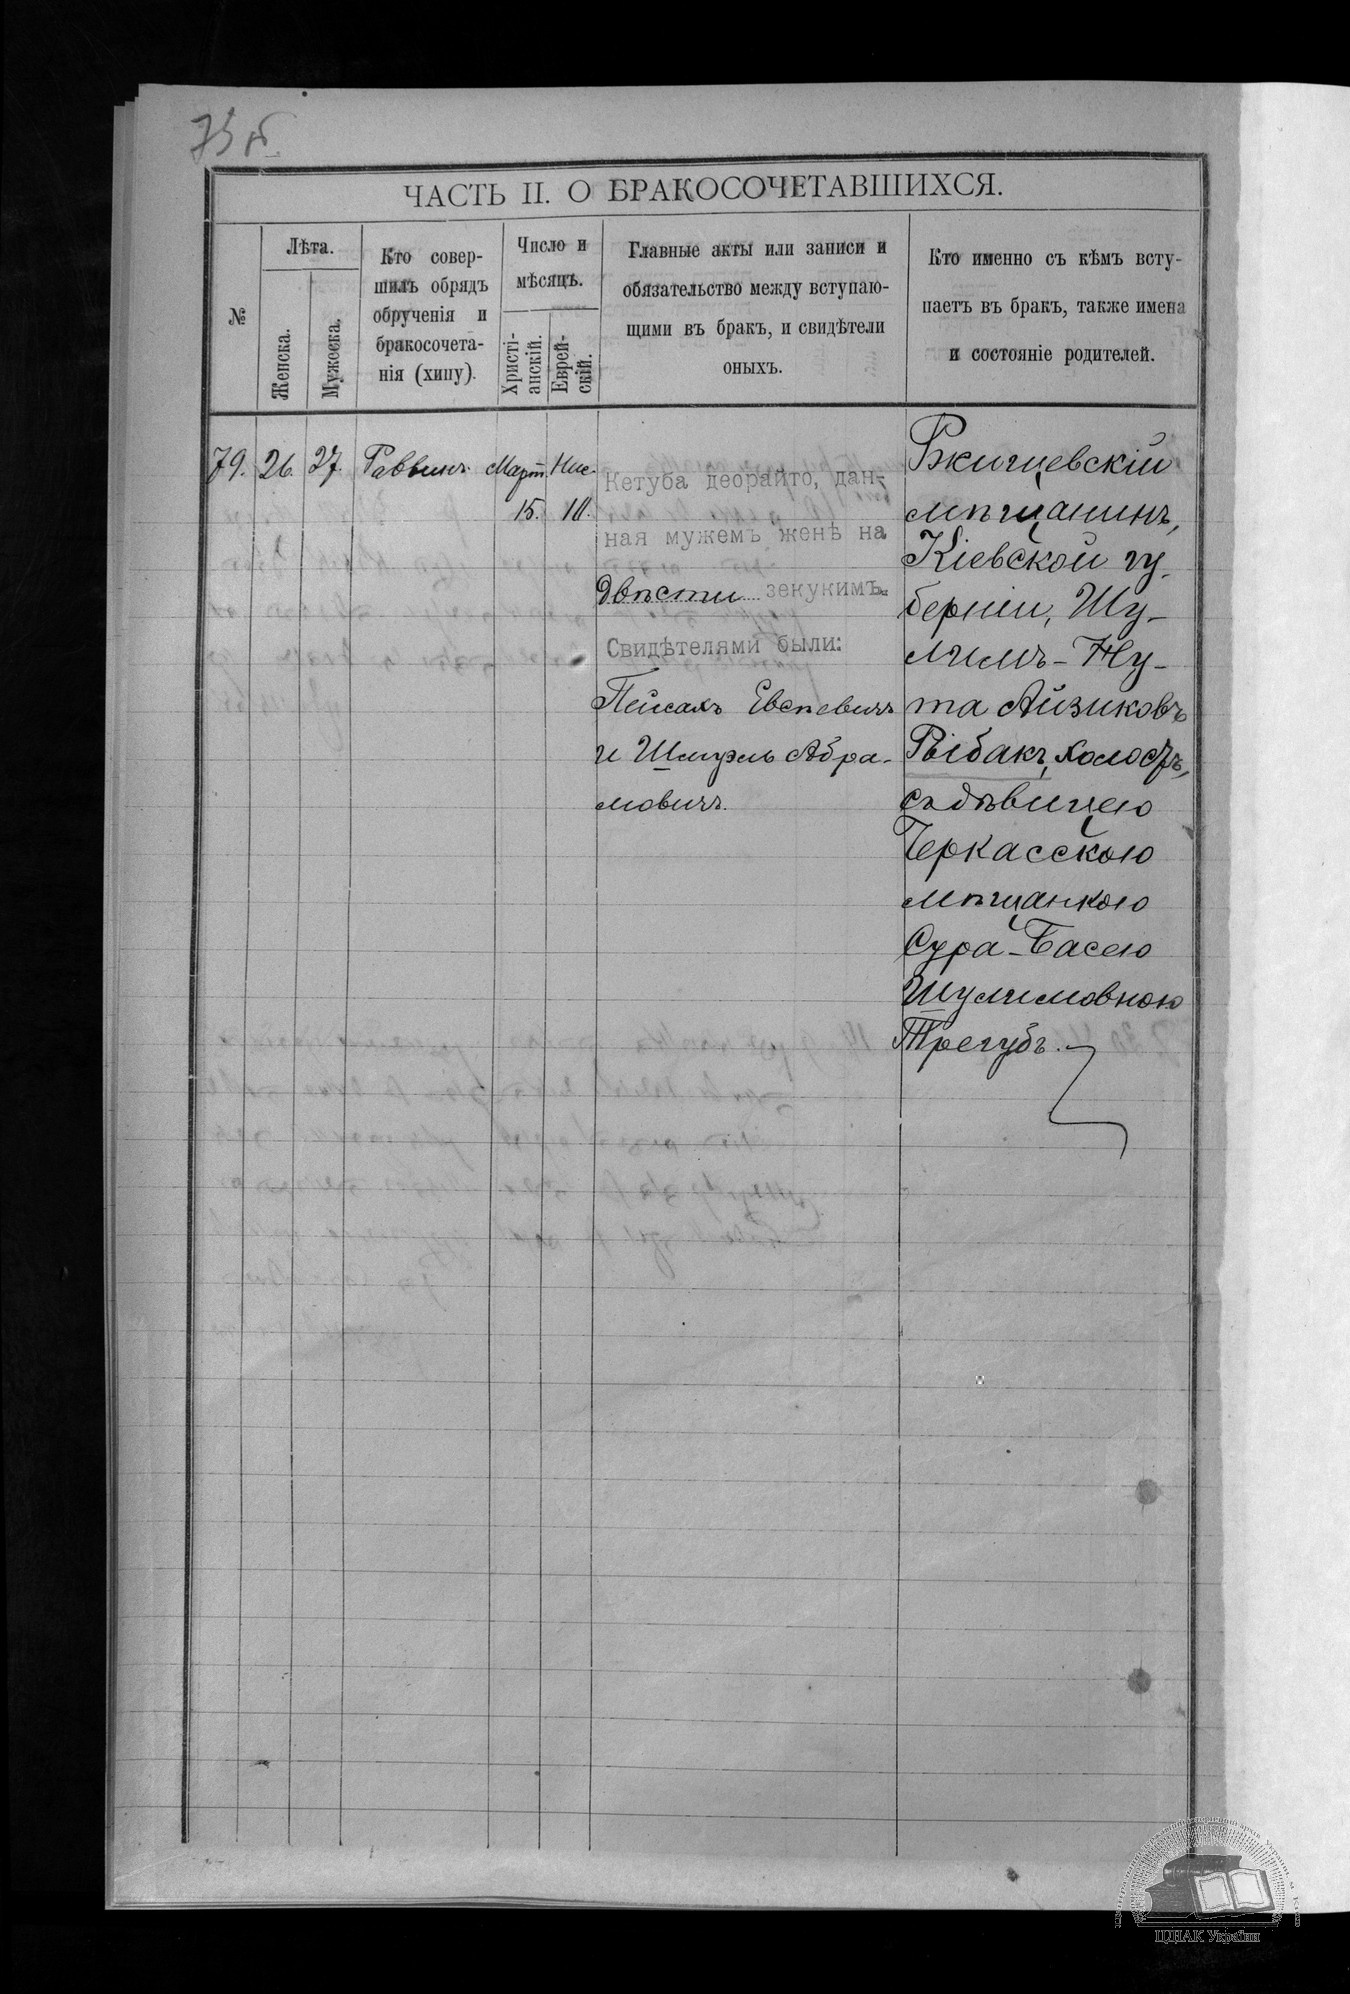 ЧАСТЬ II. О БРАКОСОЧЕТАВШИХСЯ.
№
Лѣта.
Женска.
Мужеска.
Кто совер-
шилъ обрядъ
обрученія и
бракосочета-
нія (хипу).
Число и
мѣсяцъ.
Христі-
анскій.
Еврей-
скій.
Главные акты или записи и
обязательство между вступаю-
щими въ бракъ, и свидѣтели
оныхъ.
Кто именно съ кѣмъ всту-
паетъ въ бракъ, также имена
и состояніе родителей.
79. 26. 27. Раввинъ. Март. Нис.
15. 10.
Кетуба деорайто, дан-
ная мужемъ женѣ на
двѣсти зекукимъ.
Свидѣтелями были:
Пейсахъ
и Шмуэль Абра-
мовичъ.
Ржищевскій
мѣщанинъ,
Кіевской гу-
берніи, Шу-
лимъ-Ну-
та Айзиковъ
Рыбакъ, холостъ,
съ дѣвицею
Черкасскою
мѣщанкою
Сура-Басею
Шулимовною
Трегубъ.
ЦДІАК України